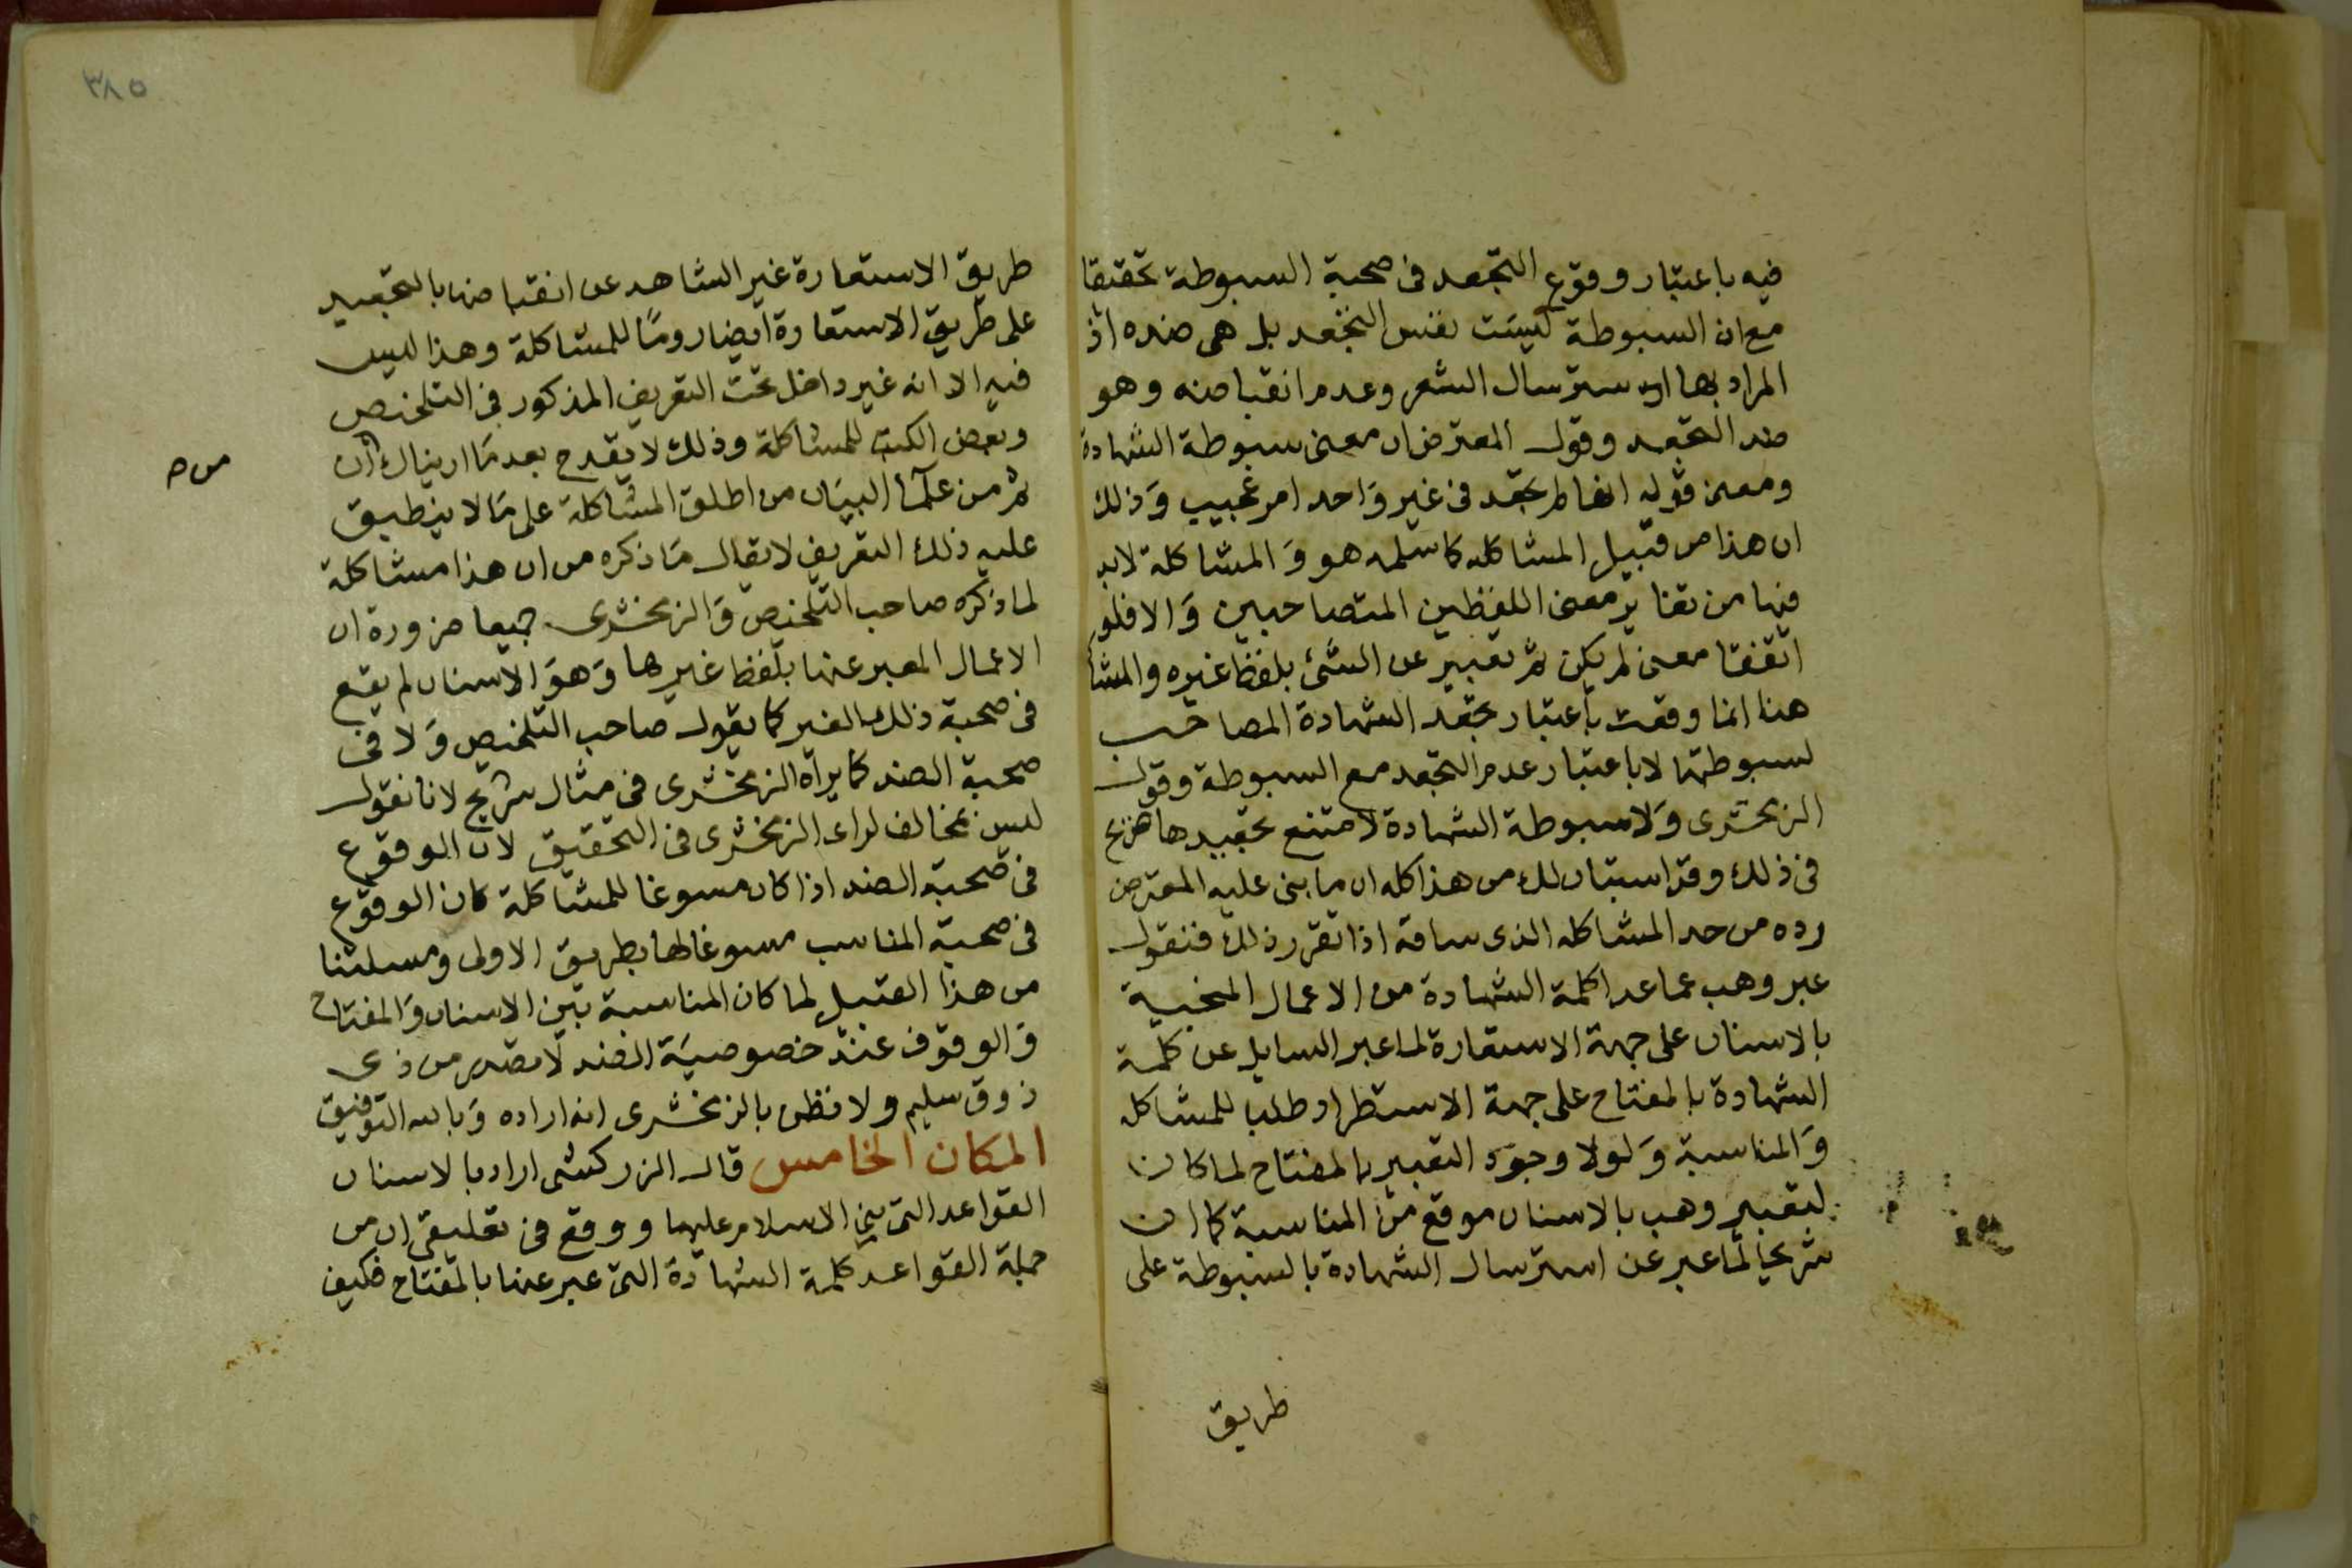 فيه باعتبار وقوع التجعد فى صحبة السبوطة تحقيقا
مع ان السبوطة ليست نفس التجعد بل هى ضده اذ
المراد بها استرسال الشعر وعدم انقباضه وهو
ضد التجعد وقول المعترض ان معنى سبوطة الشهادة
ومعنى قوله انها لم تجعد فى غير واحد امر عجيب وذلك
ان هذا من قبيل المشاكله كما سلمه هو والمشاكلة لابد
فيها من تغاير معنى اللفظين المتصاحبين والا فلو
اتفقتا معنى لم يكن ثم تعبير عن الشئ بلفظ غيره والمشا
هنا انما وقعت باعتبار تجعد الشهادة المصاحب
لسبوطتها لا باعتبار عدم التجعد مع السبوطة وقول
الزمخشرى ولا سبوطة الشهادة لامتنع تجعيدها صريح
فى ذلك وقد استبان لك من هذا كله ان ما بنى عليه المعترض
رده من حد المشاكله الذى ساقه اذا تقرر ذلك فنقول
عبر وهب عما عدا كلمة الشهادة من الاعمال المنجية
بالاسنان على جهة الاستعارة لما عبر السايل عن كلمة
الشهادة بالمفتاح على جهة الاستطراد طلبا للمشاكله
والمناسبة ولولا وجود التعبير بالمفتاح لما كان
لتعبير وهب بالاسنان موقع من المناسبة كما ان
شريحا لما عبر عن استرسال الشهادة بالسبوطة على
طريق
٣٨٥
طريق الاستعارة غير الشاهد عن انقباضها بالتجعيد
على طريق الاستعارة ايضا روما للمشاكلة وهذا ليس
فيه الا انه غير داخل تحت التعريف المذكور فى التلخيص
وبعض الكتب للمشاكلة وذلك لا يقدح بعد ما اريناك ان
ثم من علما البيان من اطلق المشاكلة على ما لا ينطبق
عليه ذلك التعريف لا يقال ما ذكره من ان هذا مشاكلة
لما ذكره صاحب التلخيص والزمخشرى جميعا ضرورة ان
الاعمال المعبر عنها بلفظ غيرها وهو الاسنان لم يقع
فى صحبة ذلك الغير كما يقول صاحب التلخيص ولا فى
صحبة الضد كما يراه الزمخشرى فى مثال شريح لانا نقول
ليس بمخالف لراى الزمخشرى فى التحقيق لان الوقوع
فى صحبة الضد اذا كان مسوغا للمشاكلة كان الوقوع
فى صحبة المناسب مسوغا لها بطريق الاولى ومسلتنا
من هذا القبيل لما كان المناسبة بين الاسنان والمفتاح
والوقوف عند خصوصية الضد لا تصدر من ذى
ذوق سليم ولا نظن بالزمخشرى انه اراده وبالله التوفيق
المكان الخامس قال الزركشى اراد بالاسنان
القواعد التى بنى الاسلام عليها ووقع فى تعليقى ان من
جملة القواعد كلمة الشهادة التى عبر عنها بالمفتاح فكيف